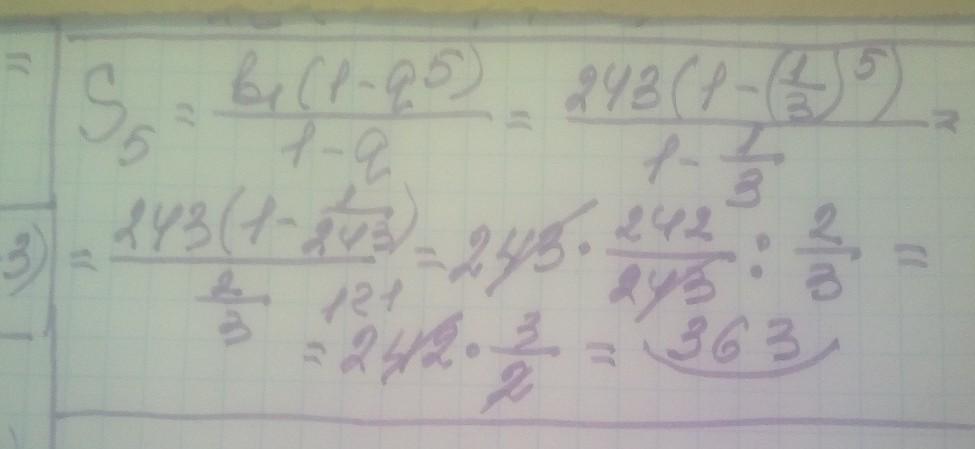 =
S₅ = b₁(1-q⁵)/(1-q) = 243(1-(1/3)⁵)/(1-1/3) =
3) = 243(1-1/243)/(2/3) = 243 · 242/243 : 2/3 =
121
= 242 · 3/2 = 363